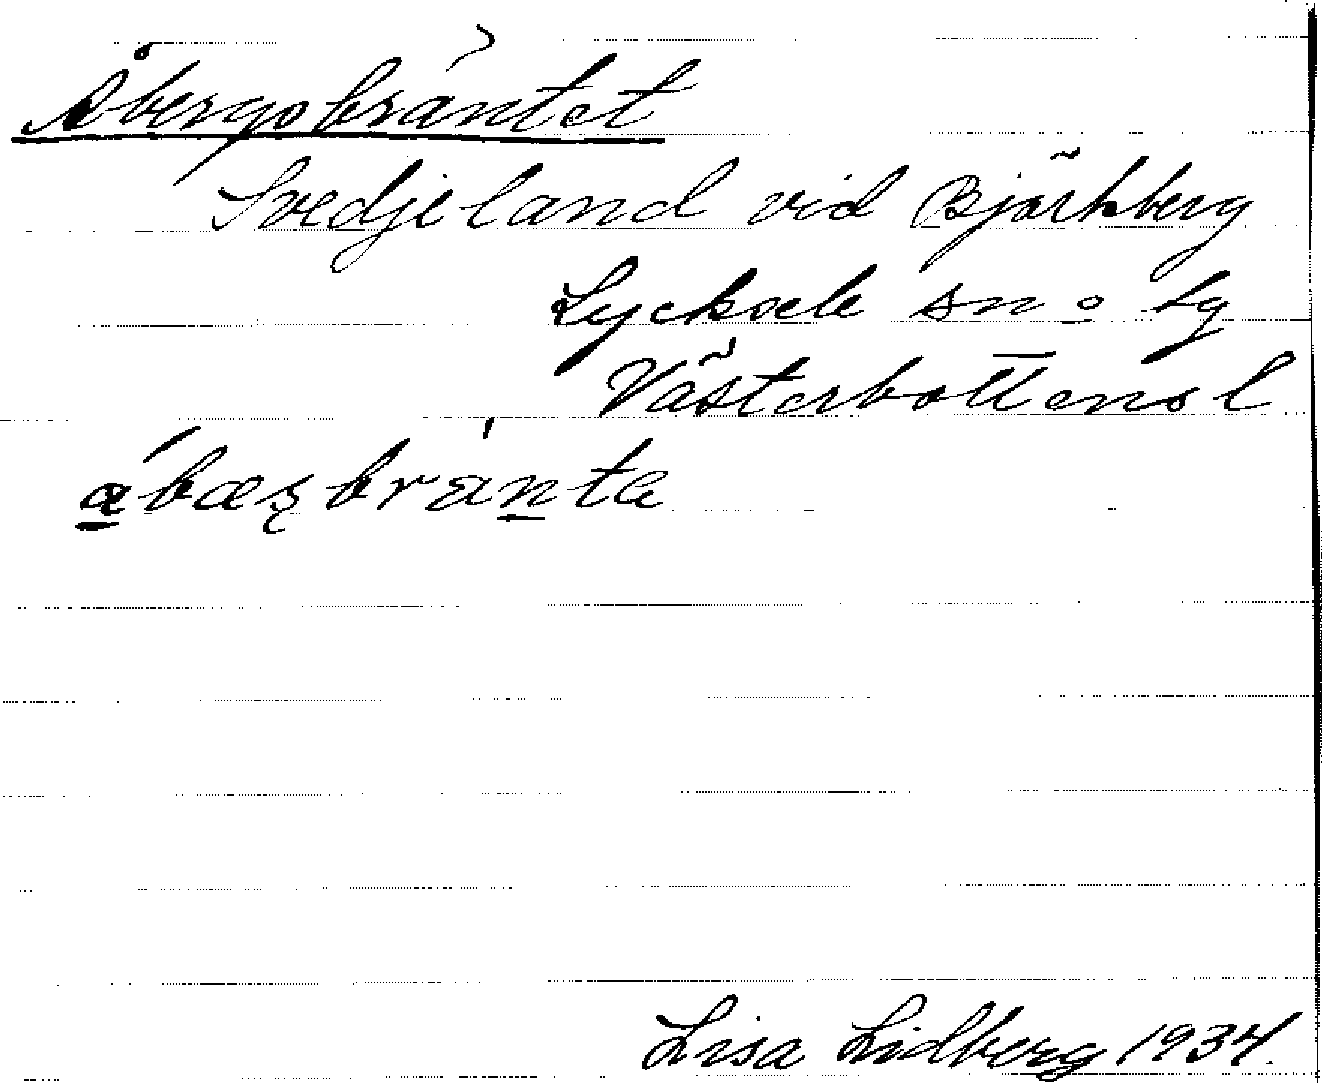 Åbergsbräntet
Svedjeland vid Björkberg
Lycksele sn o tg
Västerbottens l
Lisa Lidberg 1934.